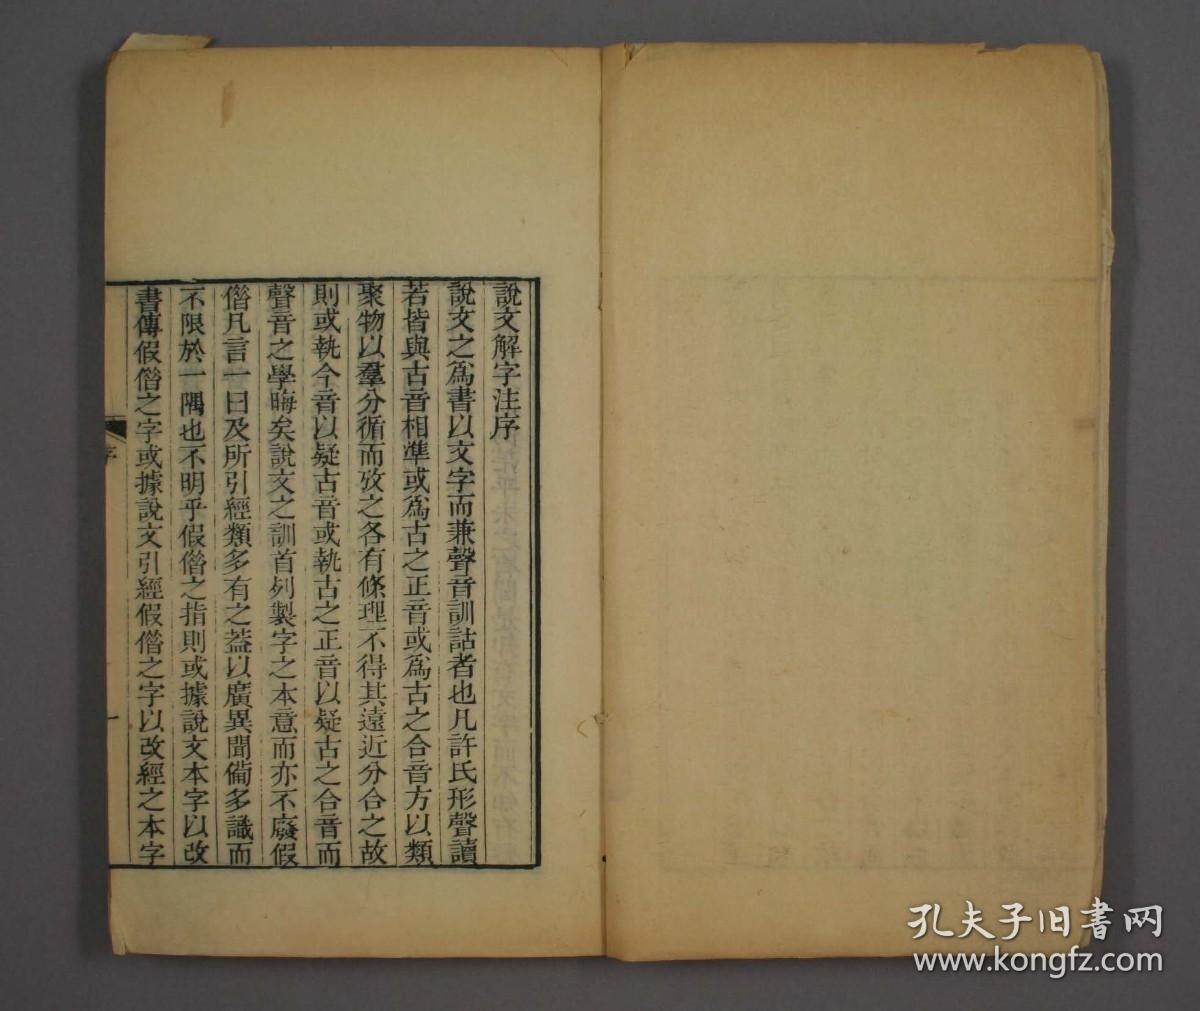 說文解字注序
說文之爲書以文字而兼聲音訓詁者也凡許氏形聲讀
若皆與古音相準或爲古之正音或爲古之合音方以類
聚物以羣分循而攷之各有條理不得其遠近分合之故
則或執今音以疑古音或執古之正音以疑古之合音而
聲音之學晦矣說文之訓首列製字之本意而亦不廢假
僭凡言一曰及所引經類多有之葢以廣異聞備多識而
不限於一隅也不明乎假僭之指則或據說文本字以改
書傳假僭之字或據說文引經假僭之字以改經之本字
序
一
孔夫子旧書网
www.kongfz.com